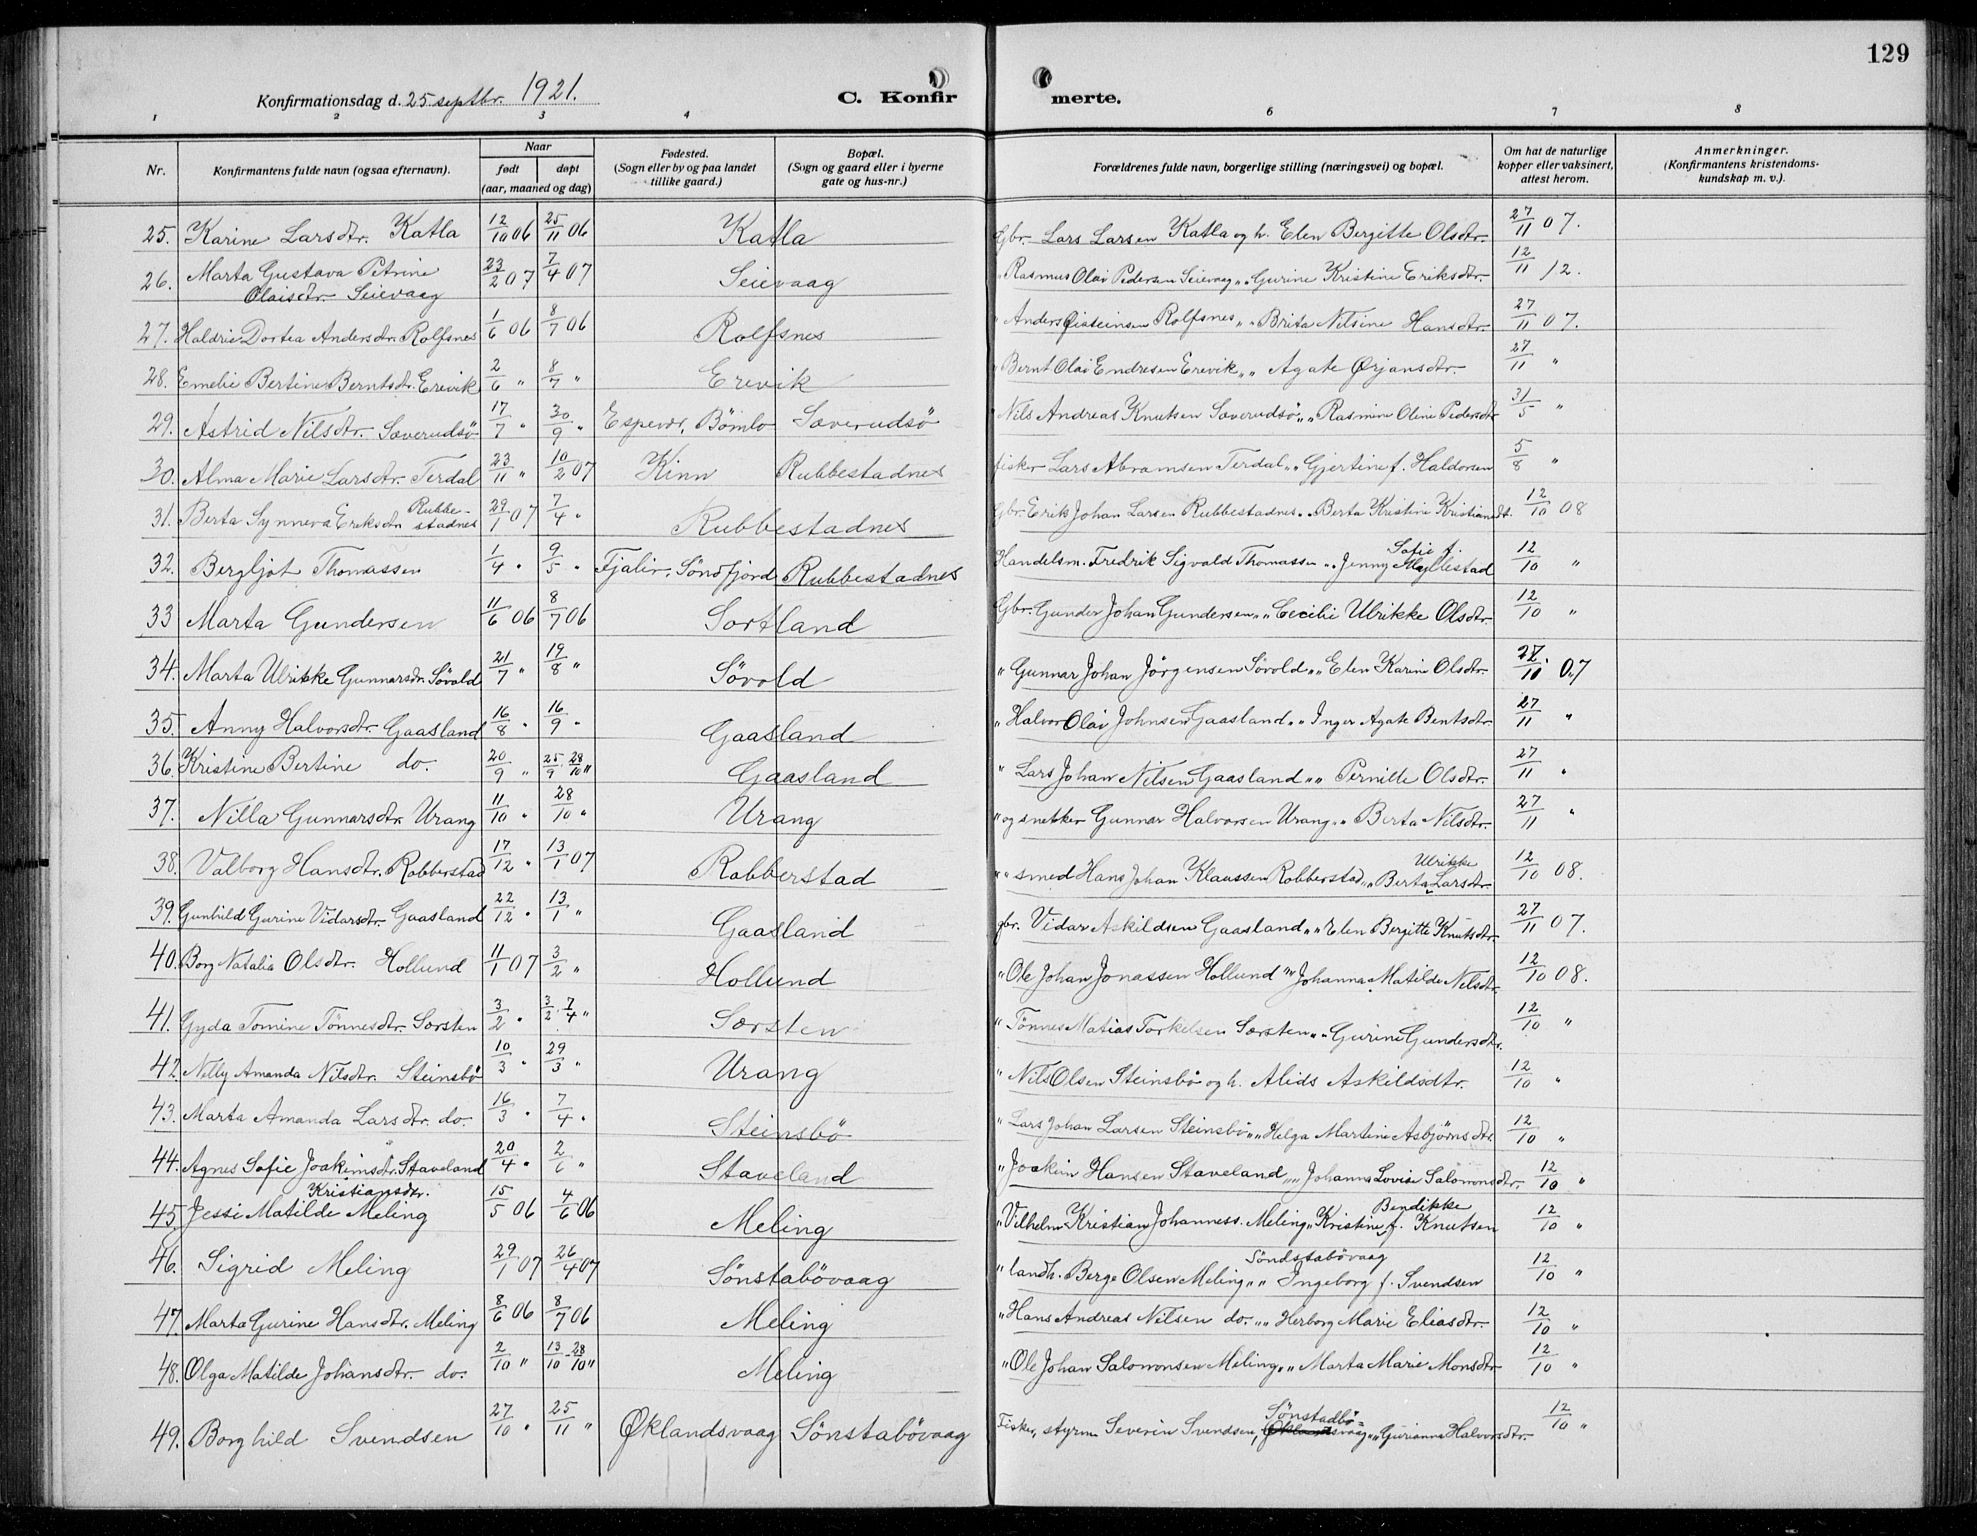 129
Konfirmationsdag d. 25 septbr. 1921.
C. Konfir merte.
1 2 3 4 6 7 8
Nr. Konfirmantens fulde navn (ogsaa efternavn). Naar født døpt (aar, maaned og dag) Fødested. (Sogn eller by og paa landet tillike gaard.) Bopæl. (Sogn og gaard eller i byerne gate og hus-nr.) Forældrenes fulde navn, borgerlige stilling (næringsvei) og bopæl. Om hat de naturlige kopper eller vaksinert, attest herom. Anmerkninger. (Konfirmantens kristendomskundskap m. v.).
25. Karine Larsdtr. Katla 12/10 06 25/11 06 Katla Gbr. Lars Larsen Katla og h. Elen Bergitte Olsdtr. 27/11 07.
26. Marta Gustava Petrine Olaisdtr Seievaag 23/2 07 7/4 07 Seievaag " Rasmus Olai Pedersen Seievaag „ „ Gurine Kristine Eriksdtr. 12/11 12.
27. Haldrie Dortea Andersdtr. Rolfsnes 1/6 06 8/7 06 Rolfsnes " Anders Øisteinsen Rolfsnes „ „ Brita Nilsine Hansdtr. 27/11 07.
28. Emelie Bertine Berntsdtr. Erevik 2/6 " 8/7 " Erevik " Bernt Olai Endresen Erevik „ „ Agate Ørjansdtr. 27/11 "
29. Astrid Nilsdtr. Sæverudsö 17/7 " 30/9 " Espevær, Bömlo Sæverudsö " Nils Andreas Knutsen Sæverudsö „ „ Rasmine Oline Pedersdtr 31/5 "
30. Alma Marie Larsdtr. Terdal 23/11 " 10/2 07 Kinn Rubbestadnes fisker Lars Abramsen Terdal „ „ Gjertine f. Haldorsen 5/8 "
31. Berta Synneva Eriksdtr Rubbestadnes 29/1 07 7/4 " Rubbestadnes Gbr. Erik Johan Larsen Rubbestadnes „ „ Berta Kristine Kristiansdt. 12/10 08
32. Bergljot Thomassen 1/4 " 9/5 " Fjalir, Söndfjord Rubbestadnes Handelsm. Fredrik Sigvald Thomassen „ „ Jenny Sofie f. Myklestad 12/10 "
33 Marta Gundersen 11/6 06 8/7 06 Sortland Gbr. Gunder Johan Gundersen „ „ Cecilie Ulrikke Olsdtr. 12/10 "
34. Marta Ulrikke Gunnarsdtr. Sövold 21/7 " 19/8 " Sövold " Gunnar Johan Jörgensen Sövold „ „ Elen Karine Olsdtr. 27/11 07
35. Anny Halvorsdtr. Gaasland 16/8 " 16/9 " Gaasland " Halvor Olai Johnsen Gaasland „ „ Inger Agate Bentsdtr. 27/11 "
36. Kristine Bertine do. 20/9 " 25/9 . 28/10 " Gaasland " Lars Johan Nilsen Gaasland „ „ Pernille Olsdtr. 27/11 "
37. Nilla Gunnarsdtr. Urang 11/10 " 28/10 " Urang " og snekker Gunnar Halvorsen Urang „ „ Berta Nilsdtr. 27/11 "
38. Valborg Hansdtr. Robberstad 17/12 " 13/1 07 Robberstad " " smed Hans Johan Klaussen Robberstad „ „ Berta Ulrikke Larsdtr. 12/10 08.
39. Gunhild Gurine Vidarsdtr. Gaasland 22/12 " 13/1 " Gaasland gbr. Vidar Askildsen Gaasland „ „ Elen Bergitte Knutsdtr. 27/11 07.
40. Borg Natalia Olsdtr. Hollund 11/1 07 3/2 " Hollund " Ole Johan Jonassen Hollund „ „ Johanna Matilde Nilsdtr. 12/10 08.
41. Gyda Tomine Tönnesdtr. Sørsten 3/2 " 3/2 . 7/4 " Sørsten " Tönnes Matias Torkelsen Sørsten „ „ Gurine Gundersdtr. 12/10 "
42. Nelly Amanda Nilsdtr. Steinsbö 10/3 " 29/3 " Urang " Nils Olsen Steinsbö og h. Alids Askildsdtr. 12/10 "
43. Marta Amanda Larsdtr. do. 16/3 " 7/4 " Steinsbö " Lars Johan Larsen Steinsbö „ „ Helga Martine Asbjörnsdtr. 12/10 "
44. Agnes Sofie Joakimsdtr. Staveland 20/4 " 2/6 " Staveland " Joakim Hansen Staveland „ „ Johanna Lovise Salomonsdtr. 12/10 "
45. Jessi Matilde Kristiansdtr. Meling 15/5 06 4/6 06 Meling " Vilhelm Kristian Johanness. Meling „ „ Kristine Bendikke f. Knutsen 12/10 "
46. Sigrid Meling 29/1 07 26/4 07 Sönstabövaag " landh. Berge Olsen Meling Söndstabövaag „ „ Ingeborg f. Svendsen 12/10 "
47. Marta Gurine Hansdtr. Meling 8/6 06 8/7 06 Meling " Hans Andreas Nilsen do. „ „ Herborg Marie Eliasdtr. 12/10 "
48. Olga Matilde Johansdtr. do. 2/10 " 13/10 - 28/10 " Meling " Ole Johan Salomonsen Meling „ „ Marta Marie Monsdtr 12/10 "
49. Borghild Svendsen 27/10 " 25/11 " Øklandsvaag Sönstabövaag Fisker, styrm Severin Svendsen, Sönstadbövaag „ „ Gurianna Halvorsdtr. 12/10 "